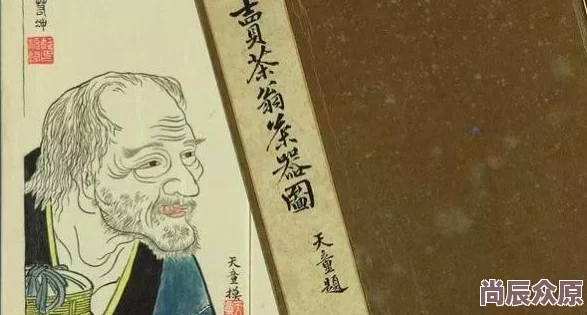 賣茶翁茶器圖
天童題
天童摸
尚辰众原